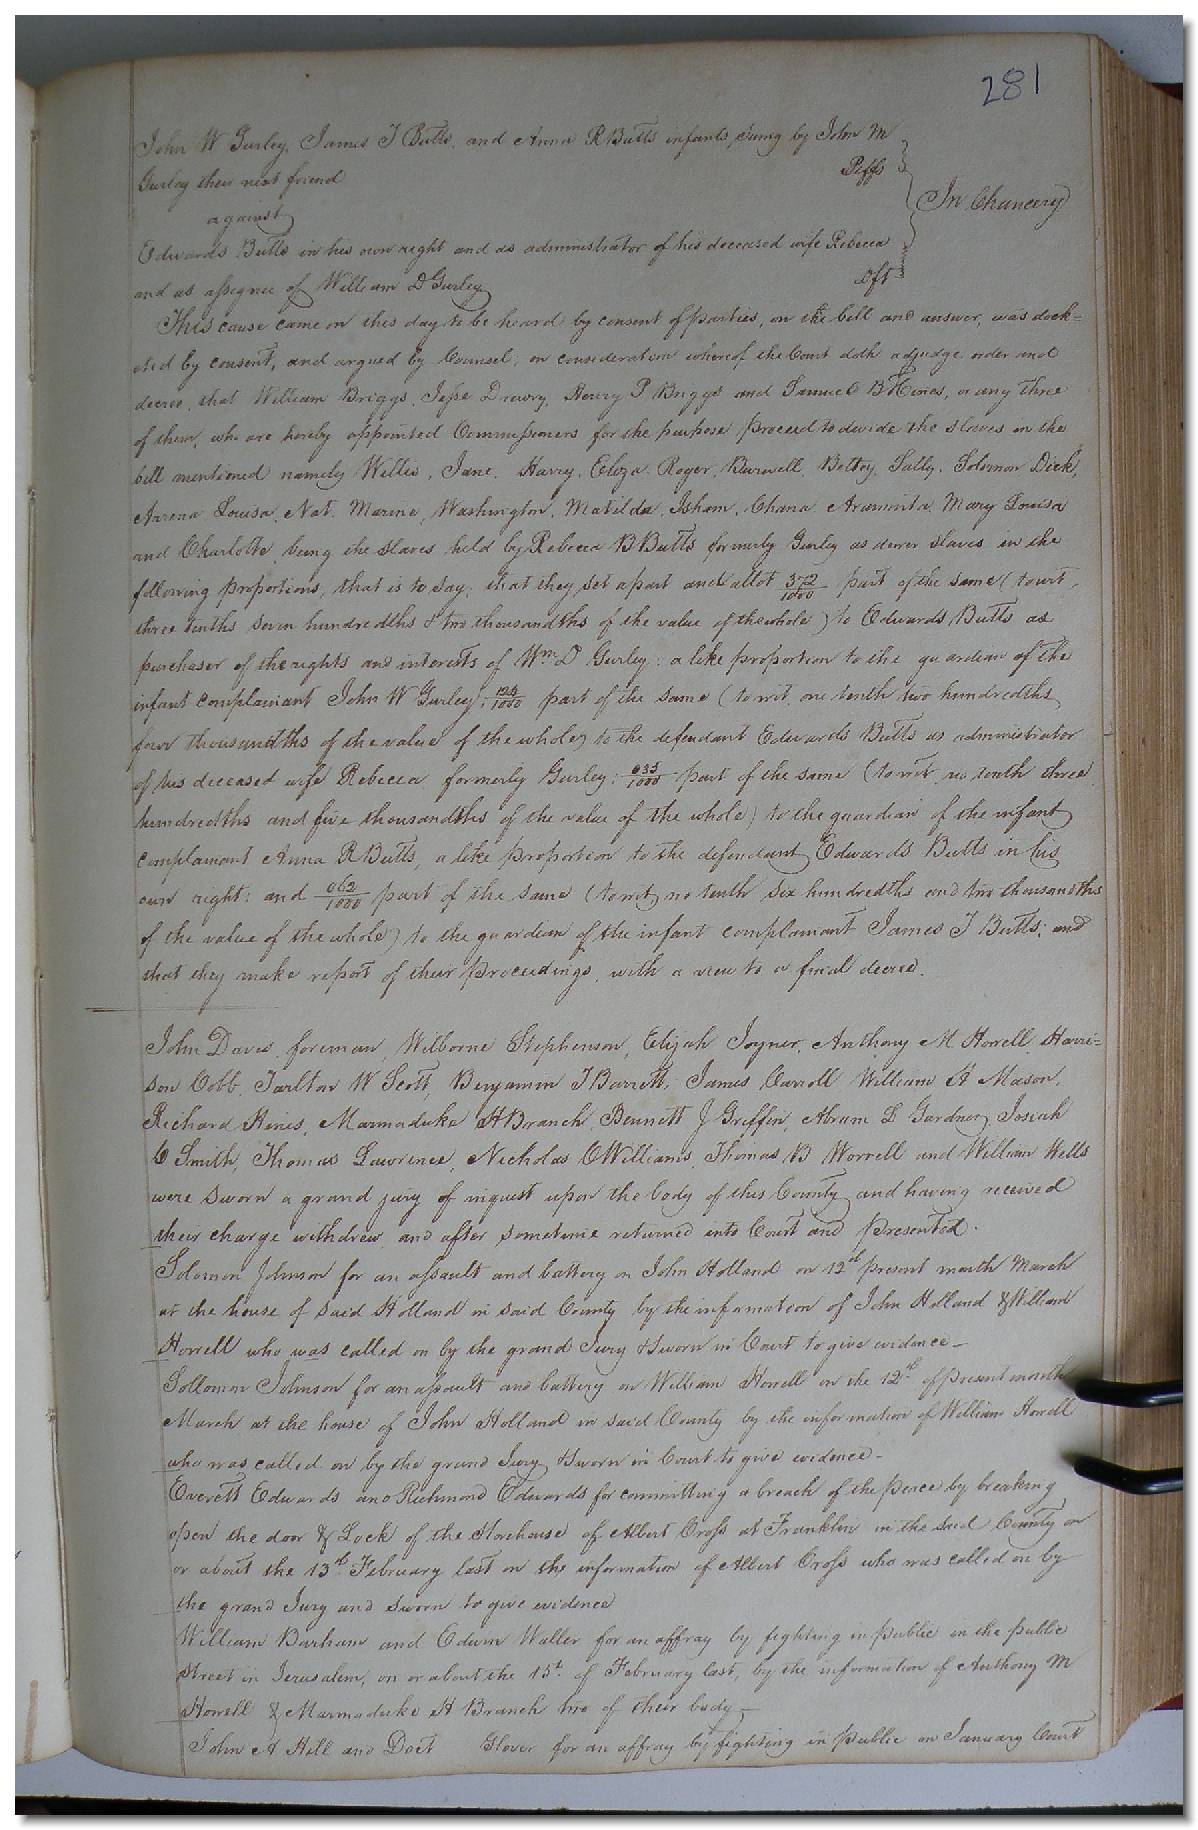 281
John W Gurley, James T Butts, and Anna R Butts infants, suing by John M
Gurley their next friend Piffs
against
In Chancery
Edwards Butts in his own right and as administrator of his deceased wife Rebecca
and as assignee of William D Gurley Dft
This cause came on this day to be heard by consent of parties, on the bill and answer, was dock=
eted by consent, and argued by Counsel; on consideration whereof the Court doth adjudge order and
decree, that William Briggs, Jesse Drewry, Henry P Briggs and Samuel B Hines, or any three
of them, who are hereby appointed Commissioners for the purpose proceed to divide the slaves in the
bill mentioned namely Willis, Jane, Harry, Eliza, Roger, Burwell, Bettey, Sally, Solomon Dick,
Arrena Louisa, Nat, Marine, Washington, Matilda, Isham, Chana, Araminta, Mary Louisa
and Charlotte, being the slaves held by Rebecca B Butts formerly Gurley as dower slaves in the
following proportions, that is to say; that they set apart and allot 372/1000 part of the same (towit,
three tenths seven hundredths & two thousandths of the value of the whole) to Edwards Butts as
purchaser of the rights and interests of Wm D Gurley: a like proportion to the guardian of the
infant complainant John W Gurley; 124/1000 part of the same (towit, one tenth two hundredths
four thousandths of the value of the whole) to the defendant Edwards Butts as administrator
of his deceased wife Rebecca formerly Gurley; 035/1000 part of the same (towit, no tenth three
hundredths and five thousandths of the value of the whole) to the guardian of the infant
complainant Anna R Butts, a like proportion to the defendant Edwards Butts in his
own right: and 062/1000 part of the same (towit, no tenth six hundredths and two thousandths
of the value of the whole) to the guardian of the infant complainant James T Butts; and
that they make report of their proceedings, with a view to a final decree.
John Davis, foreman, Wilborne Stephenson, Elijah Joyner, Anthony M Howell, Harri=
son Cobb, Tarlton W Scott, Benjamin T Barrett, James Carroll William H Mason,
Richard Hines, Marmaduke H Branch, Bennett J Griffin, Abram L Gardner, Josiah
C Smith, Thomas Lawrence, Nicholas C Williams, Thomas B Worrell and William Wells
were sworn a grand jury of inquest upon the body of this County and having received
their charge withdrew and after sometime returned into Court and presented.
Solomon Johnson for an assault and battery on John Holland on 12th present month March
at the house of said Holland in said County by the information of John Holland & William
Howell who was called on by the grand Jury & sworn in Court to give evidence_
Sollomon Johnson for an assault and battery on William Howell on the 12th of present month
March at the house of John Holland in said County by the information of William Howell
who was called on by the grand Jury & sworn in Court to give evidence_
Everett Edwards and Richmond Edwards for committing a breach of the peace by breaking
open the door & Lock of the Storehouse of Albert Cross at Franklin in the said County on
or about the 13th February last on the information of Albert Cross who was called on by
the grand Jury and sworn to give evidence
William Barham and Edwin Waller for an affray by fighting in public in the public
street in Jerusalem, on or about the 15th of February last, by the information of Anthony M
Howell & Marmaduke H Branch two of their body_
John A Hill and Doct Glover for an affray by fighting in public on January Court